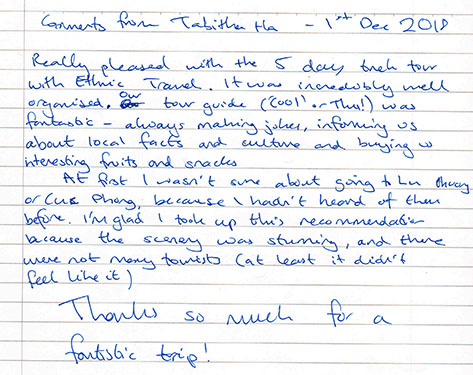 Comments from Tabitha Ha - 1st Dec 2018
Really pleased with the 5 day trek tour
with Ethnic Travel. It was incredibly well
organised. Our tour guide ('Cool' or Thu!) was
fantastic - always making jokes, informing us
about local facts and culture and buying us
interesting fruits and snacks
At first I wasn't sure about going to Lu
or Cuc Phong, because I hadn't heard of them
before. I'm glad I took up this recommendation
because the scenery was stunning, and there
were not many tourists (at least it didn't
feel like it)
Thanks so much for a
fantistic trip!